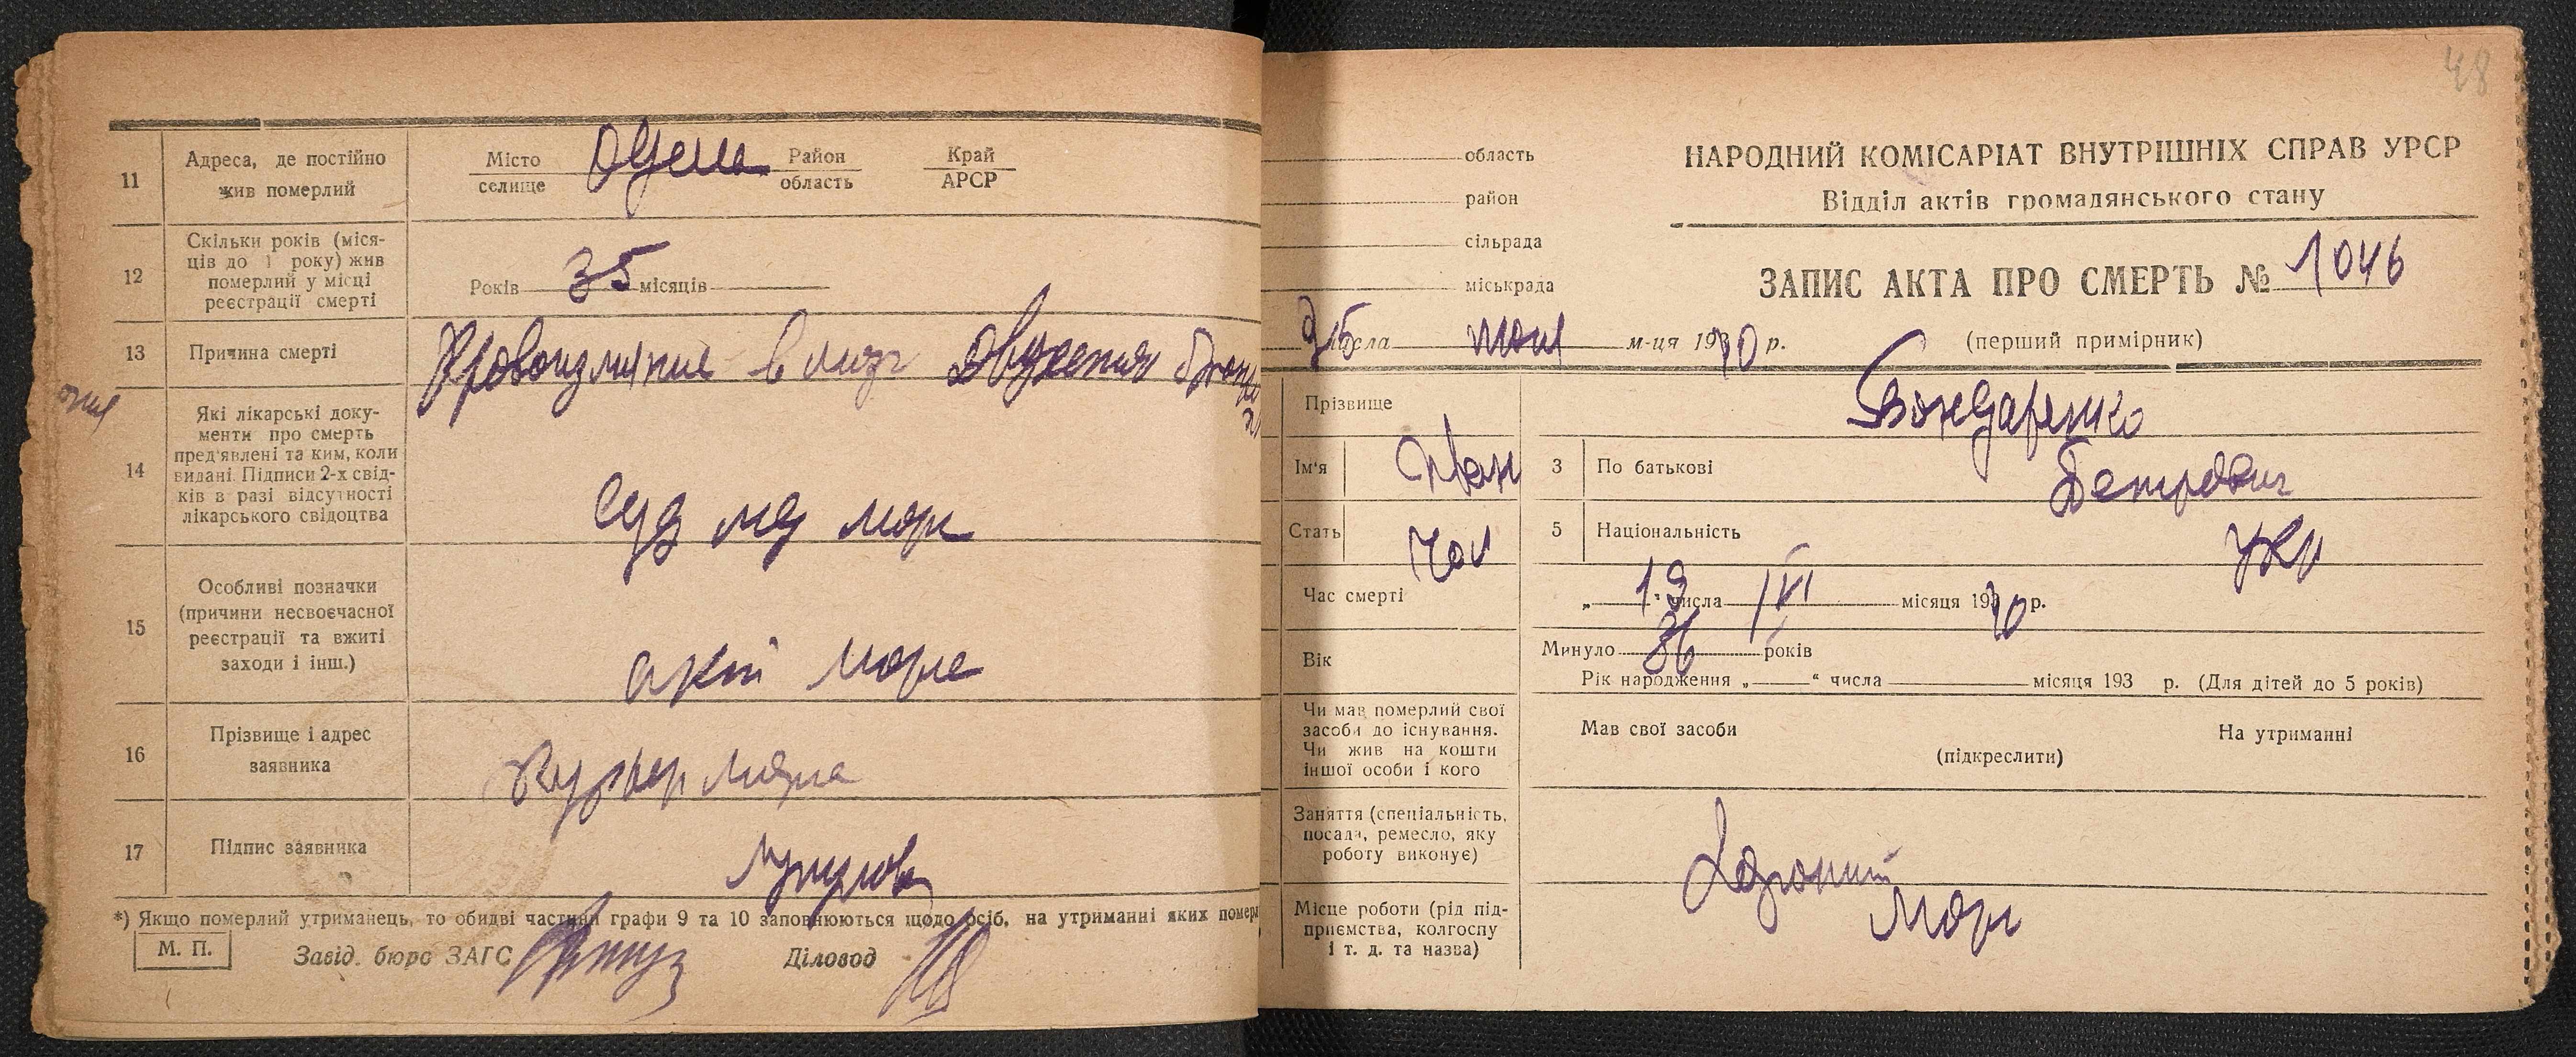 11
Адреса, де постійно
жив померлий
Місто
селище
Одеса
Район
область
Край
АРСР
12
Скільки років (міся-
ців до 1 року) жив
померлий у місці
реєстрації смерті
Років 35 місяців
13
Причина смерті
Кровоизлияние в мозг
14
Які лікарські доку-
менти про смерть
пред'явлені та ким, коли
видані. Підписи 2-х свід-
ків в разі відсутності
лікарського свідоцтва
суд мед морг
15
Особливі позначки
(причини несвоєчасної
реєстрації та вжиті
заходи і інш.)
акт морга
16
Прізвище і адрес
заявника
Курьер морга
17
Підпис заявника
*) Якщо померлий утриманець, то обидві частини графи 9 та 10 заповнюються щодо осіб, на утриманні яких помер
М. П.
Завід. бюро ЗАГС
Діловод
48
область
район
сільрада
міськрада
НАРОДНИЙ КОМІСАРІАТ ВНУТРІШНІХ СПРАВ УРСР
Відділ актів громадянського стану
ЗАПИС АКТА ПРО СМЕРТЬ № 1046
м-ця 1940 р.
(перший примірник)
Прізвище
Бондаренко
Ім'я
Иван
3
По батькові
Петрович
Стать
Чол
5
Національність
укр
Час смерті
„ 19 " числа VI місяця 1940 р.
Вік
Минуло 36 років
Рік народження „ “ числа місяця 193 р. (Для дітей до 5 років)
Чи мав померлий свої
засоби до існування.
Чи жив на кошти
іншої особи і кого
Мав свої засоби
(підкреслити)
На утриманні
Заняття (спеціальність,
посада, ремесло, яку
роботу виконує)
Місце роботи (рід під-
приємства, колгоспу
і т. д. та назва)